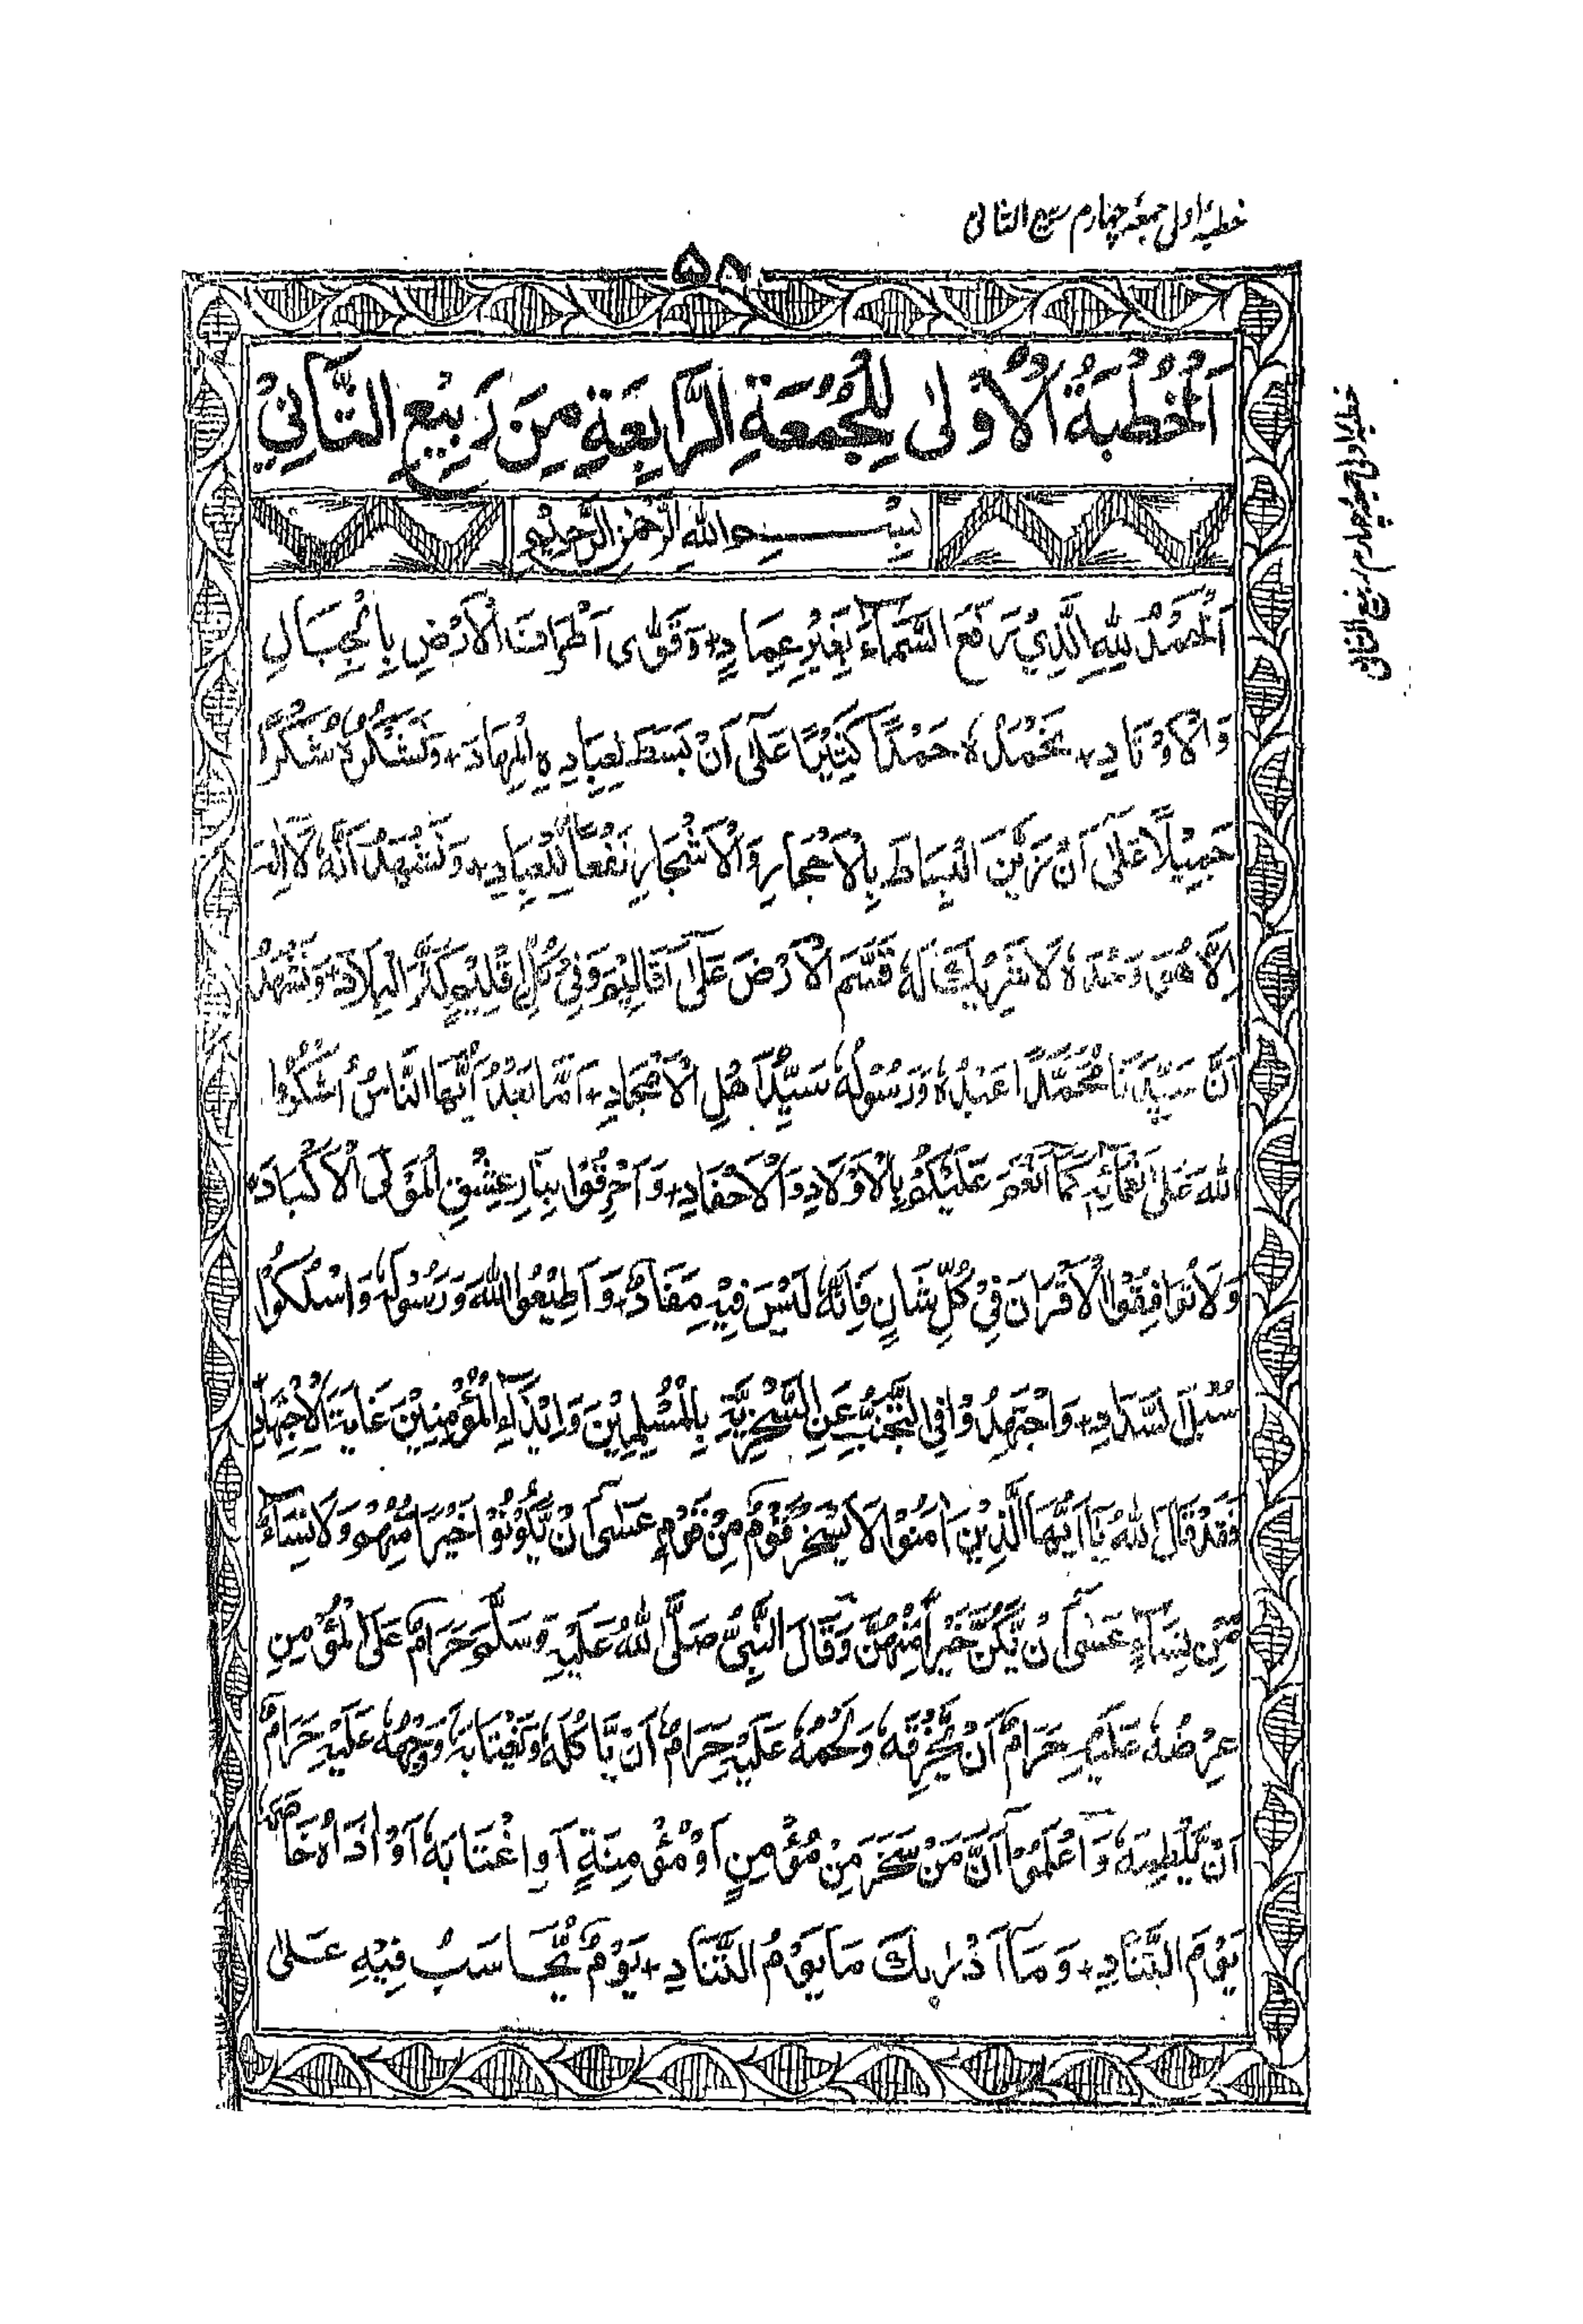 خطبۂ اولی جمعۂ چہارم ربیع الثانی
۵۸
اَلْخُطْبَةُ الْاُوْلٰى لِلْجُمُعَةِ الرَّابِعَةِ مِنْ رَبِيْعِ الثَّانِيْ
بِسْــــمِ اللهِ الرَّحْمٰنِ الرَّحِيْمِ
اَلْحَمْدُ لِلّٰهِ الَّذِيْ رَفَعَ السَّمَآءَ بِغَيْرِ عِمَادٍ+ وَقَوّٰى اَطْرَافَ الْاَرْضِ بِالْجِبَالِ
وَالْاَوْتَادِ+ نَحْمَدُهٗ حَمْدًا كَثِيْرًا عَلٰى اَنْ بَسَطَ لِعِبَادِهِ الْمِهَادَ+ وَنَشْكُرُهٗ شُكْرًا
جَمِيْلًا عَلٰى اَنْ زَيَّنَ الْبِسَاطَ بِالْاَحْجَارِ وَالْاَشْجَارِ نَفْعًا لِلْعِبَادِ+ وَنَشْهَدُ اَنَّهٗ لَآ اِلٰهَ
اِلَّا هُوَ وَحْدَهٗ لَا شَرِيْكَ لَهٗ قَسَّمَ الْاَرْضَ عَلٰى اَقَالِيْمَ وَفِيْ كُلِّ اِقْلِيْمٍ كَثَّرَ الْبِلَادَ+ وَنَشْهَدُ
اَنَّ سَيِّدَنَا مُحَمَّدًا عَبْدُهٗ وَرَسُوْلُهٗ سَيِّدُ اَهْلِ الْاَمْجَادِ+ اَمَّا بَعْدُ اَيُّهَا النَّاسُ اُشْكُرُوا
اللهَ عَلٰى نَعْمَآئِهٖ كَمَآ اَنْعَمَ عَلَيْكُمْ بِالْاَوْلَادِ وَالْاَحْفَادِ+ وَاَحْرِقُوْا بِنَارِ عِشْقِ الْمَوْلَى الْاَكْبَادَ+
وَلَا تُوَافِقُوا الْاَقْرَانَ فِيْ كُلِّ شَانٍ فَاِنَّهٗ لَيْسَ فِيْهِ مَفَادٌ+ وَاَطِيْعُوا اللهَ وَرَسُوْلَهٗ وَاسْلُكُوْا
سُبُلَ السَّدَادِ+ وَاجْتَهِدُوْا فِى التَّجَنُّبِ عَنِ السُّخْرِيَّةِ بِالْمُسْلِمِيْنَ وَاِيْذَآءِ الْمُؤْمِنِيْنَ غَايَةَ الْاِجْتِهَادِ
فَقَدْ قَالَ اللهُ يَآ اَيُّهَا الَّذِيْنَ اٰمَنُوْا لَا يَسْخَرْ قَوْمٌ مِّنْ قَوْمٍ عَسٰٓى اَنْ يَّكُوْنُوْا خَيْرًا مِّنْهُمْ وَلَا نِسَآءٌ
مِّنْ نِسَآءٍ عَسٰٓى اَنْ يَّكُنَّ خَيْرًا مِّنْهُنَّ وَقَالَ النَّبِيُّ صَلَّى اللهُ عَلَيْهِ وَسَلَّمَ حَرَامٌ عَلَى الْمُؤْمِنِ
عِرْضُهٗ عَلَيْهِ حَرَامٌ اَنْ يَّخْرِقَهٗ وَلَحْمُهٗ عَلَيْهِ حَرَامٌ اَنْ يَّاكُلَهٗ وَيَغْتَابَهٗ وَوَجْهُهٗ عَلَيْهِ حَرَامٌ
اَنْ يَّلْطِمَهٗ وَاعْلَمُوْآ اَنَّ مَنْ سَخَرَ مِنْ مُؤْمِنٍ اَوْ مُؤْمِنَةٍ اَوِ اغْتَابَهٗ اَوْ اٰذَاهُ
يَوْمَ التَّنَادِ+ وَمَآ اَدْرٰىكَ مَا يَوْمُ التَّنَادِ+ يَوْمٌ يُّحَاسَبُ فِيْهِ عَلٰى
خطبۂ اولی جمعۂ چہارم ربیع الثانی